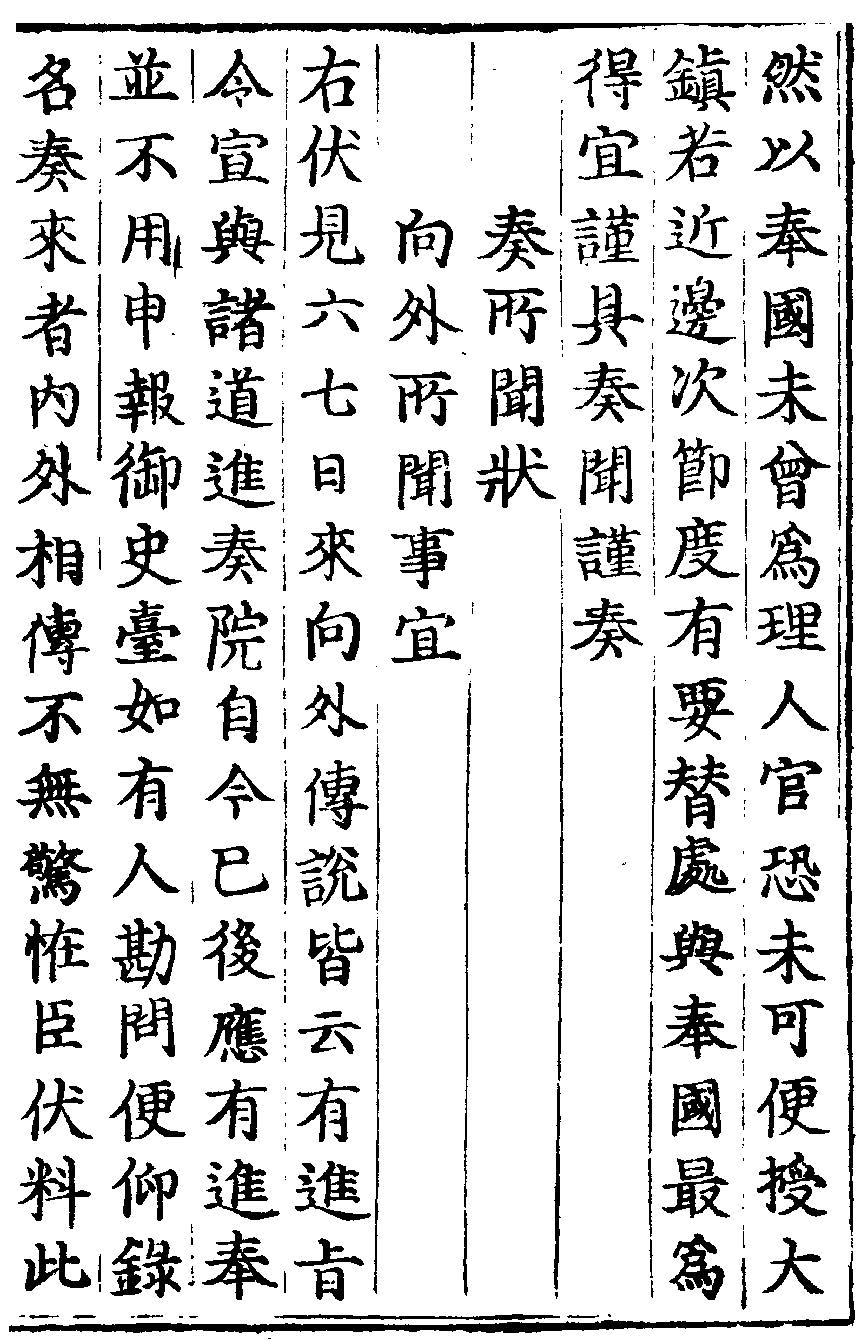 然以奉國未曾爲理人官恐未可便授大
鎮若近邊次節度有要替處與奉國最爲
得宜謹具奏聞謹奏
奏所聞狀
向外所聞事宜
右伏見六七日來向外傳說皆云有進旨
令宣與諸道進奏院自今已後應有進奉
並不用申報御史臺如有人勘問便仰錄
名奏來者內外相傳不無驚恠臣伏料此